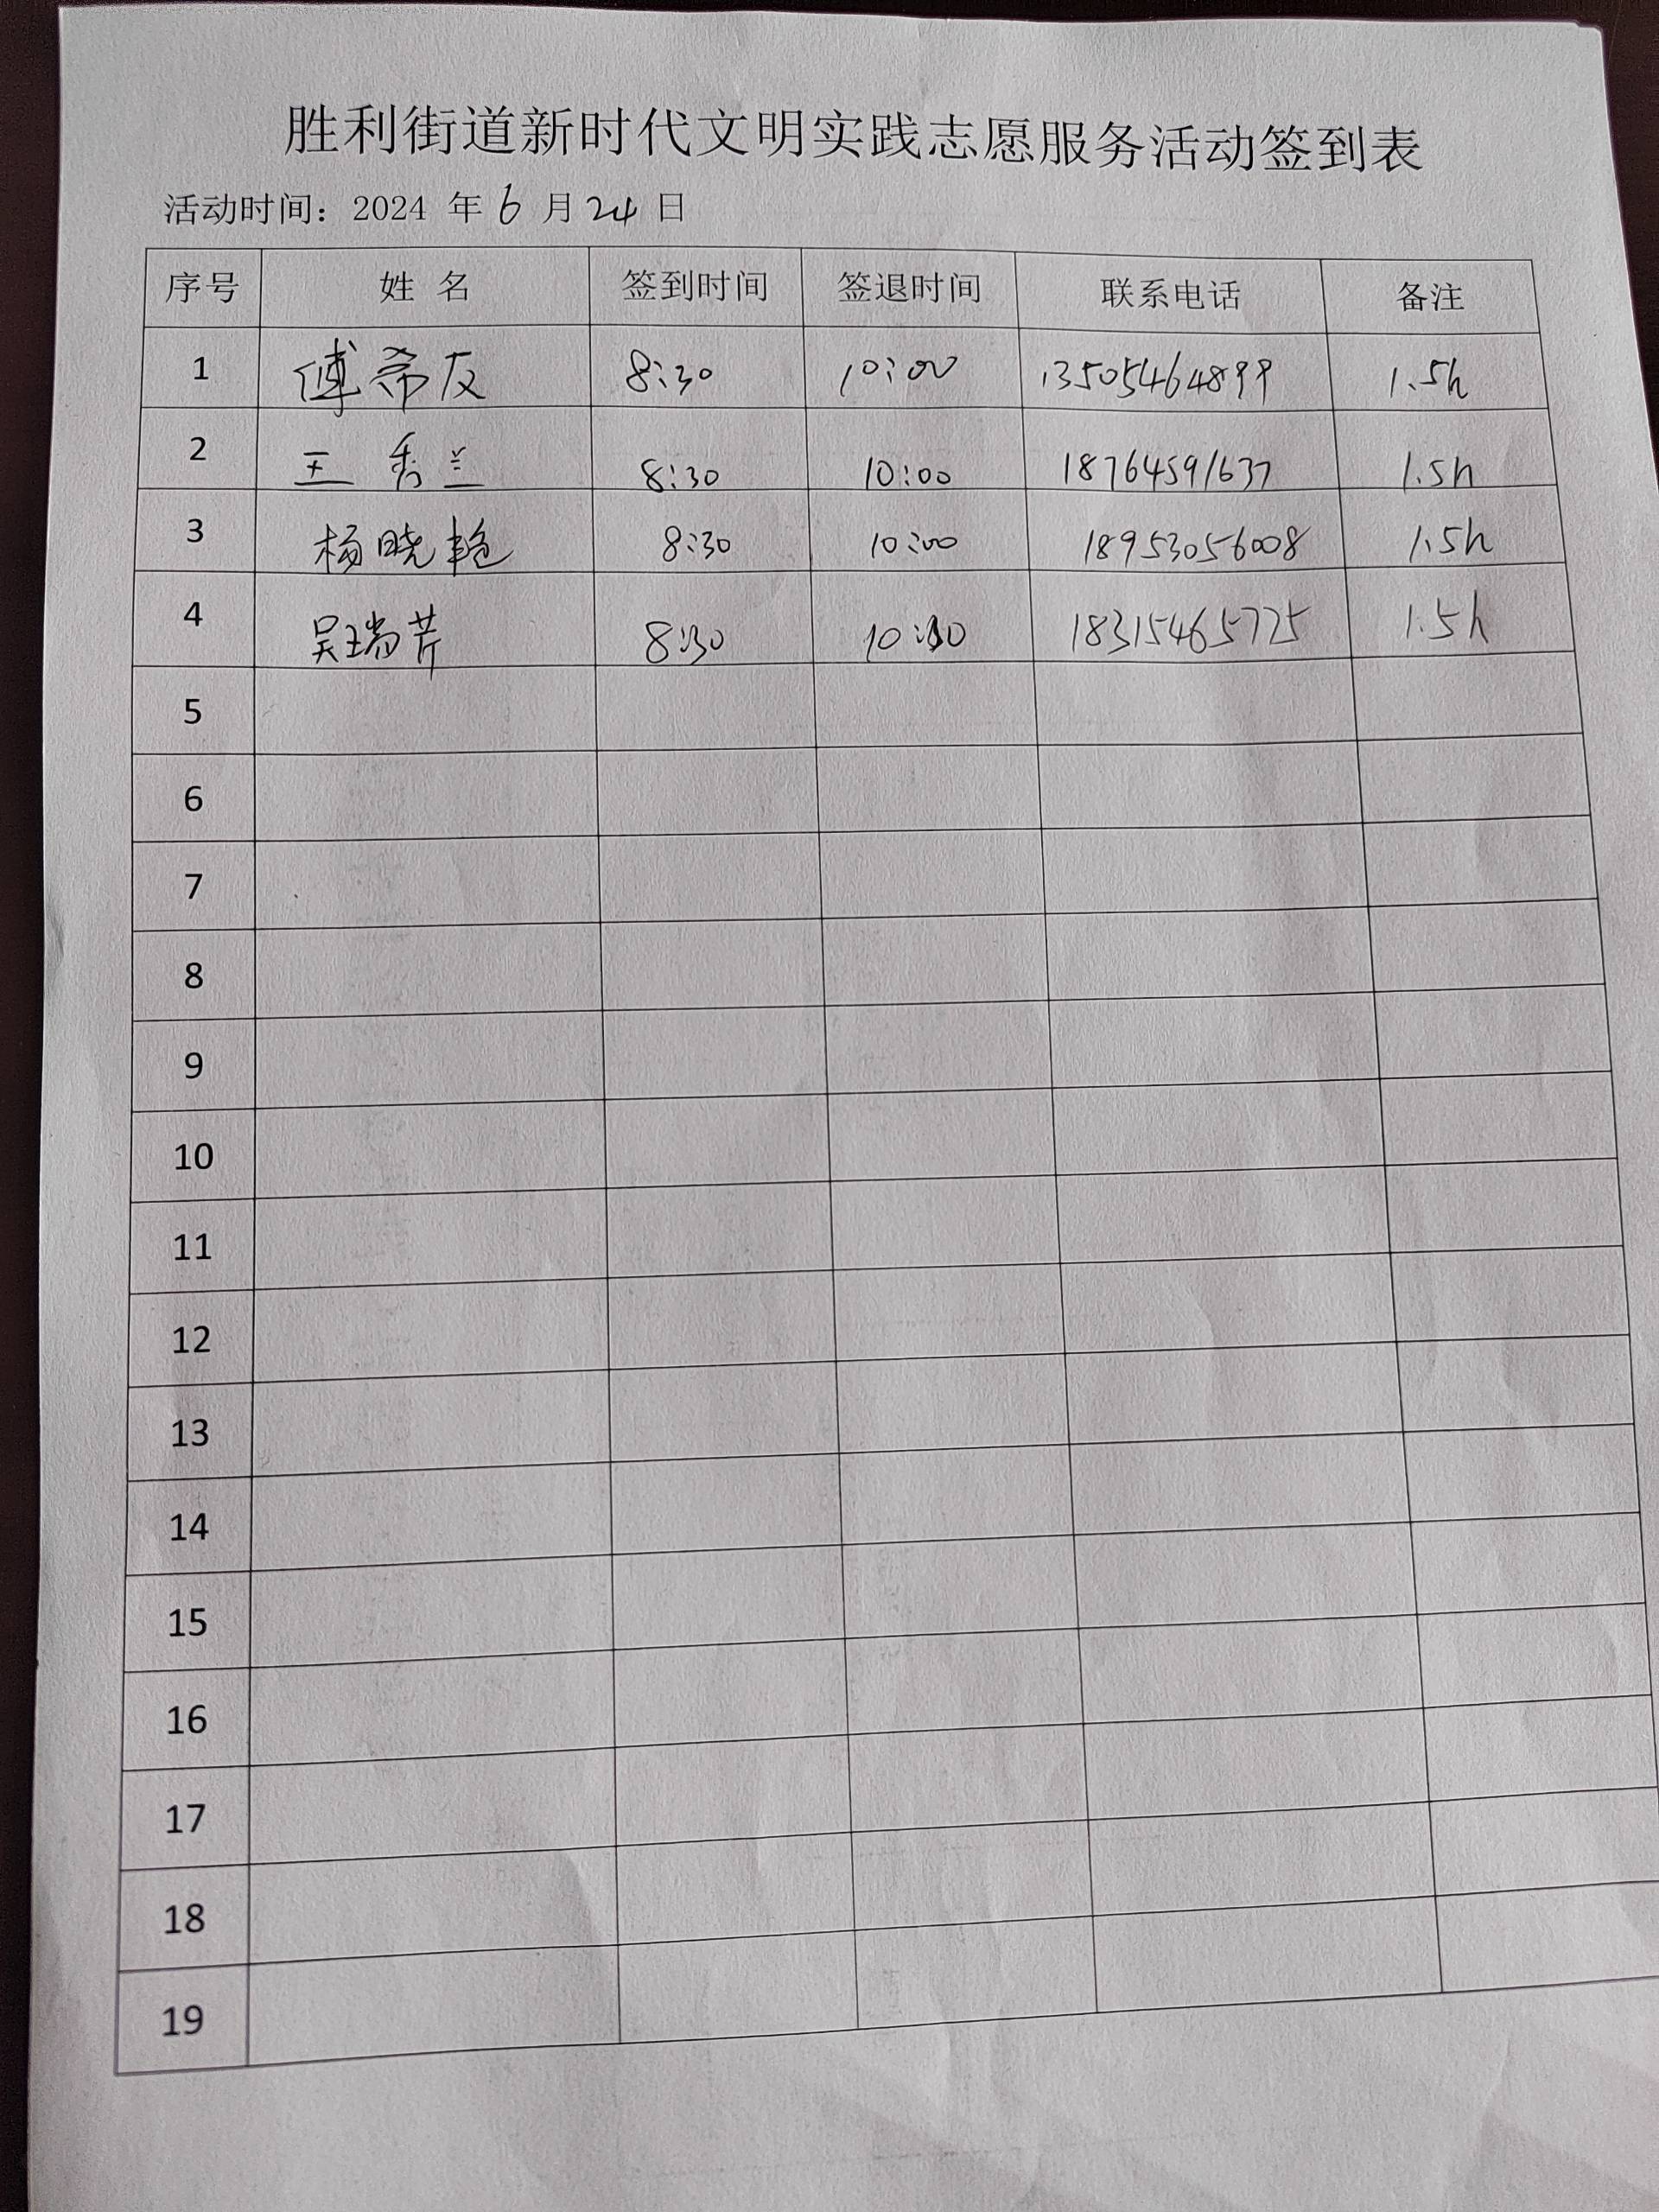 胜利街道新时代文明实践志愿服务活动签到表
活动时间：2024 年 6 月 24 日
序号 姓 名 签到时间 签退时间 联系电话 备注
1 傅希友 8:30 10:00 13505464899 1.5h
2 王秀兰 8:30 10:00 18764591637 1.5h
3 杨晓艳 8:30 10:00 18953056008 1.5h
4 吴瑞芹 8:30 18315465725 1.5h
5
6
7
8
9
10
11
12
13
14
15
16
17
18
19